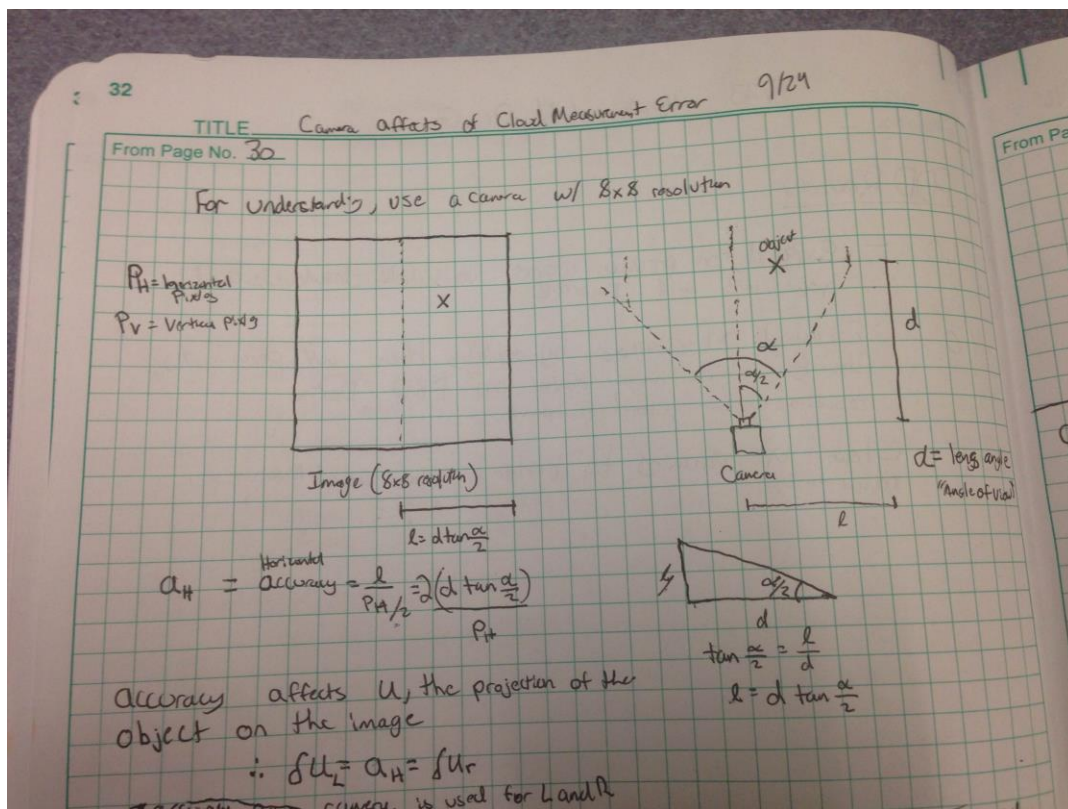 32
9/24
TITLE Camera affects of Cloud Measurement Error
From Page No. 30
From Pa
For understand'g, use a camera w/ 8x8 resolution
P_H = horizontal
Pixels
P_V = Vertical Pixels
X
object
X
α
α/2
d
Image (8x8 resolution)
Camera
α = lens angle
"Angle of View"
l
l = d tan α/2
a_H = Horizontal accuracy = l / (P_H/2) = 2(d tan α/2) / P_H
α/2
d
tan α/2 = l/d
l = d tan α/2
accuracy affects U, the projection of the
object on the image
∴ δU_L = a_H = δU_r
camera is used for L and R